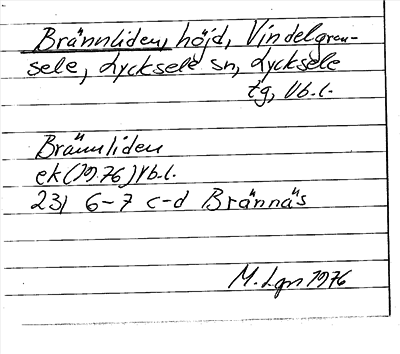 Brännliden, höjd, Vindelgran-
sele, Lycksele sn, Lycksele
tg, Vb.l.
Brännliden
ek (1976) Vb.l.
23I 6-7 c-d Brännäs
M. Lgn 1976